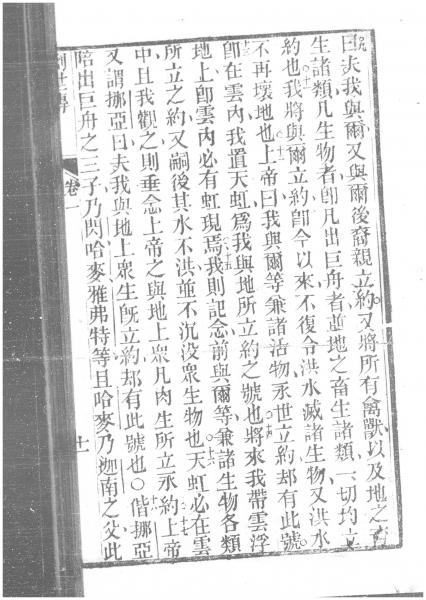 曰夫我與爾又與爾後裔親立約又將所有禽獸以及地之
生諸類凡生物者卽凡出巨舟者並地之畜生諸類一切均立
約也我將與爾立約卽今以來不復令洪水滅諸生物又洪水
不再壞地也上帝曰我與爾等兼諸活物永世立約却有此號
卽在雲內我置天虹爲我與地所立約之號也將來我帶雲浮
地上卽雲內必有虹現焉我則記念前與爾等兼諸生物各類
所立之約又嗣後其水不洪並不沉没衆生物也天虹必在雲
中且我觀之則垂念上帝之與地上衆凡肉生所立永約上帝
又謂挪亞曰夫我與地上衆生旣立約却有此號也〇偕挪亞
陪出巨舟之三子乃閃哈麥雅弗特等且哈麥乃迦南之父此
卷一
十一